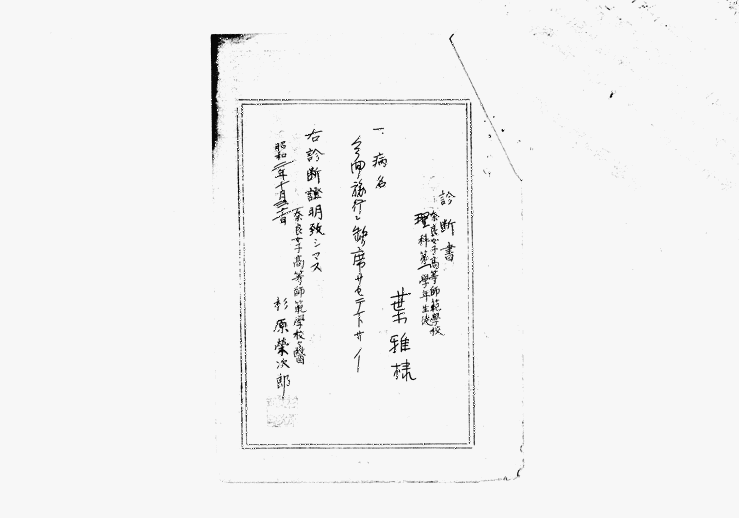 診断書
奈良女子高等師範学校
理科第一學年生徒
葉雅棣
一、病名
今回旅行ニ缺席サセテ下サイ
右診断證明致シマス
昭和二年十月三十日
奈良女子高等師範學校醫
杉原榮次郎